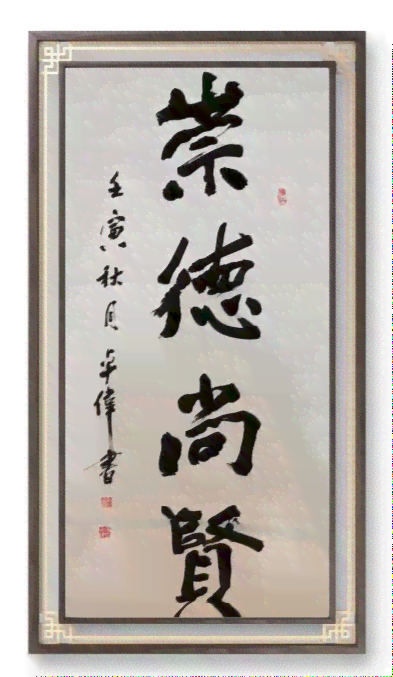 崇德尚賢
壬寅秋月卓偉書